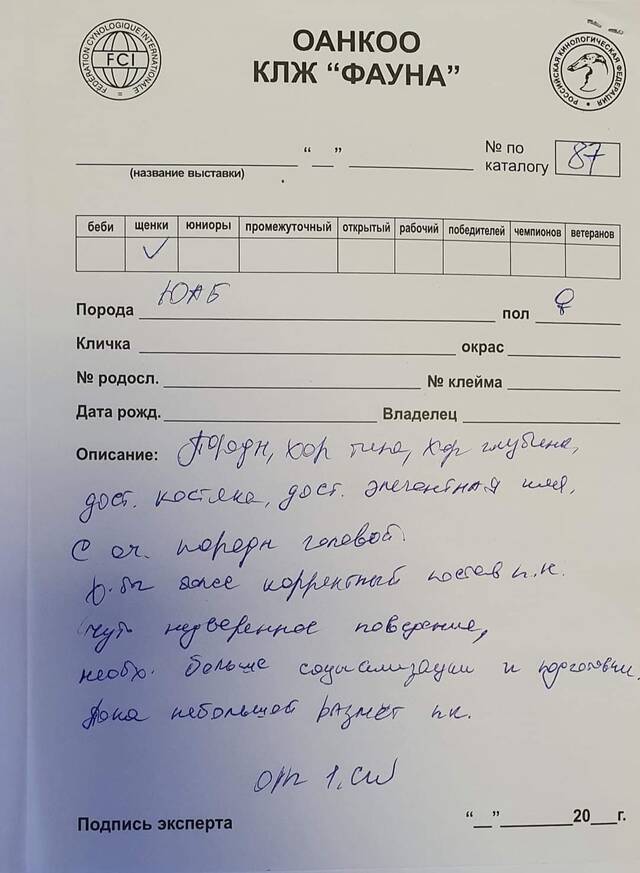 FEDERATION CYNOLOGIQUE INTERNATIONALE
FCI
ОАНКОО
КЛЖ “ФАУНА”
РОССИЙСКАЯ КИНОЛОГИЧЕСКАЯ ФЕДЕРАЦИЯ
“__”
(название выставки)
№ по каталогу 87
беби щенки юниоры промежуточный открытый рабочий победителей чемпионов ветеранов
✓
Порода ЮАБ пол ♀
Кличка окрас
№ родосл. № клейма
Дата рожд. Владелец
Описание: Породн, хор типа, хор глубина,
дост. костяка, дост. элегантная шея,
с оч. породн головой.
х.бы более корректный постав п.к.
чуть неуверенное поведение,
необх. больше социализации и подготовки,
пока небольшой размет п.к.
оп 1, CW
Подпись эксперта “__” 20 г.